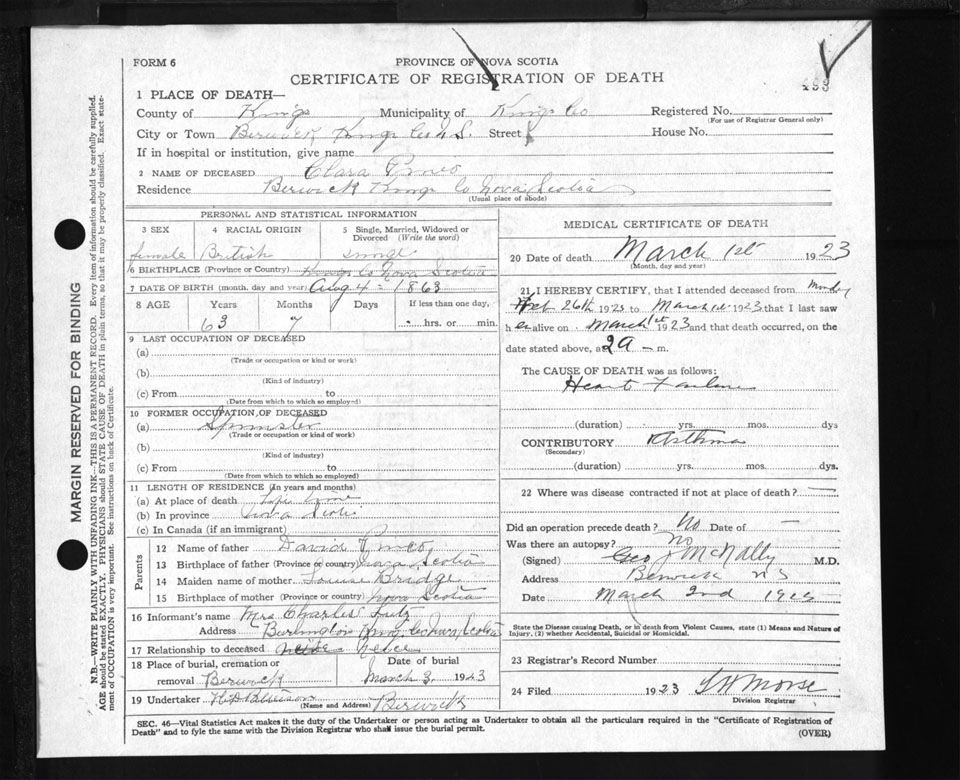 FORM 6
PROVINCE OF NOVA SCOTIA
CERTIFICATE OF REGISTRATION OF DEATH
493
1 PLACE OF DEATH—
County of Kings Municipality of Kings Co Registered No.
(For use of Registrar General only)
City or Town Berwick Kings Co N.S. Street House No.
If in hospital or institution, give name
2 NAME OF DECEASED Clara Pineo
Residence Berwick Kings Co Nova Scotia
(Usual place of abode)
PERSONAL AND STATISTICAL INFORMATION
3 SEX 4 RACIAL ORIGIN 5 Single, Married, Widowed or Divorced (Write the word)
female British single
6 BIRTHPLACE (Province or Country) Kings Co Nova Scotia
7 DATE OF BIRTH (month, day and year) Aug 4 - 1863
8 AGE Years Months Days If less than one day,
63 7 hrs. or min.
9 LAST OCCUPATION OF DECEASED
(a)
(Trade or occupation or kind or work)
(b)
(Kind of industry)
(c) From to
(Date from which to which so employed)
10 FORMER OCCUPATION OF DECEASED
(a) Spinster
(Trade or occupation or kind of work)
(b)
(Kind of industry)
(c) From to
(Date from which to which so employed)
11 LENGTH OF RESIDENCE (In years and months)
(a) At place of death time
(b) In province Nova Scotia
(c) In Canada (if an immigrant)
Parents
12 Name of father David Pineo
13 Birthplace of father (Province or country) Nova Scotia
14 Maiden name of mother Louise Bridge
15 Birthplace of mother (Province or country) Nova Scotia
16 Informant's name Mrs Charles Lutz
Address Burlington Kings Co Nova Scotia
17 Relationship to deceased neice
18 Place of burial, cremation or removal Berwick
Date of burial March 3, 1923
19 Undertaker Berwick
(Name and Address)
MEDICAL CERTIFICATE OF DEATH
20 Date of death March 1st 1923
(Month, day and year)
21 I HEREBY CERTIFY, that I attended deceased from Monday
Feb 26th 1923 to March 1st 1923 that I last saw
her alive on March 1st 1923 and that death occurred, on the
date stated above, at 2 a — m.
The CAUSE OF DEATH was as follows:
Heart Failure
(duration) yrs. mos. dys
CONTRIBUTORY Asthma
(Secondary)
(duration) yrs. mos. dys.
22 Where was disease contracted if not at place of death? —
Did an operation precede death? No Date of —
Was there an autopsy? No
(Signed) Geo J McNally M.D.
Address Berwick NS
Date March 2nd
State the Disease causing Death, or in death from Violent Causes, state (1) Means and Nature of
Injury, (2) whether Accidental, Suicidal or Homicidal.
23 Registrar's Record Number
24 Filed 1923 Morse
Division Registrar
SEC. 46—Vital Statistics Act makes it the duty of the Undertaker or person acting as Undertaker to obtain all the particulars required in the "Certificate of Registration of
Death" and to fyle the same with the Division Registrar who shall issue the burial permit. (OVER)
MARGIN RESERVED FOR BINDING
N.B.—WRITE PLAINLY WITH UNFADING INK—THIS IS A PERMANENT RECORD. Every item of information should be carefully supplied.
AGE should be stated EXACTLY. PHYSICIANS should STATE CAUSE OF DEATH in plain terms, so that it may be properly classified. Exact state-
ment of OCCUPATION is very important. See instructions on back of Certificate.